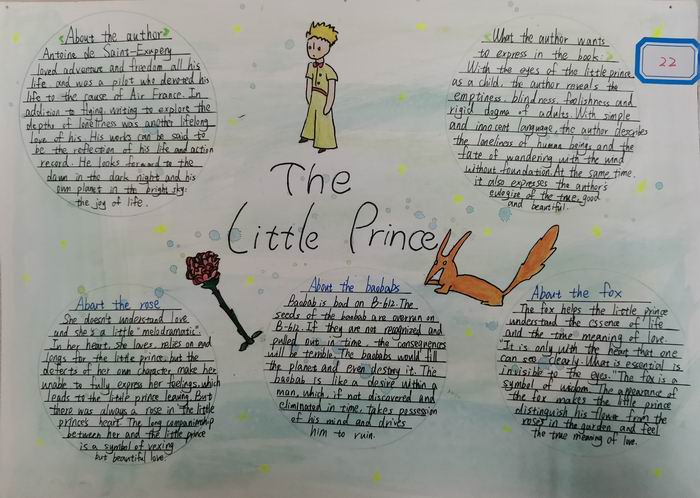 About the author
Antoine de Saint-Exupery
loved adventure and freedom all his
life and was a pilot who devoted his
life to the cause of Air France. In
addition to flying, writing to explore the
depths of loneliness was another lifelong
love of his. His works can be said to
be the reflection of his life and action
record. He looks forward to the
dawn in the dark night and his
own planet in the bright sky:
the joy of life.
What the author wants
to express in the book:
With the eyes of the little prince
as a child, the author reveals the
emptiness, blindness, foolishness and
rigid dogma of adults. With simple
and innocent language, the author describes
the loneliness of human beings and the
fate of wandering with the wind
without foundation. At the same time,
it also expresses the author's
eulogize of the true, good
and beautiful.
22
The
Little Prince
About the rose
She doesn't understand love
and she's a little "melodramatic".
In her heart, she loves, relies on and
longs for the little prince, but the
defects of her own character make her
unable to fully express her feelings, which
leads to the little prince leaving. But
there was always a rose in the little
prince's heart. The long companionship
between her and the little prince
is a symbol of vexing
but beautiful love.
About the baobabs
Baobab is bad on B-612. The
seeds of the baobab are overrun on
B-612. If they are not recognized and
pulled out in time, the consequences
will be terrible. The baobabs would fill
the planet and even destroy it. The
baobab is like a desire within a
man, which, if not discovered and
eliminated in time, takes possession
of his mind and drives
him to ruin.
About the fox
The fox helps the little prince
understand the essence of life
and the true meaning of love.
It is only with the heart that one
can see clearly. What is essential is
invisible to the eyes. The fox is a
symbol of wisdom. The appearance of
the fox makes the little prince
distinguish his flower from the
roses in the garden and feel
the true meaning of love.